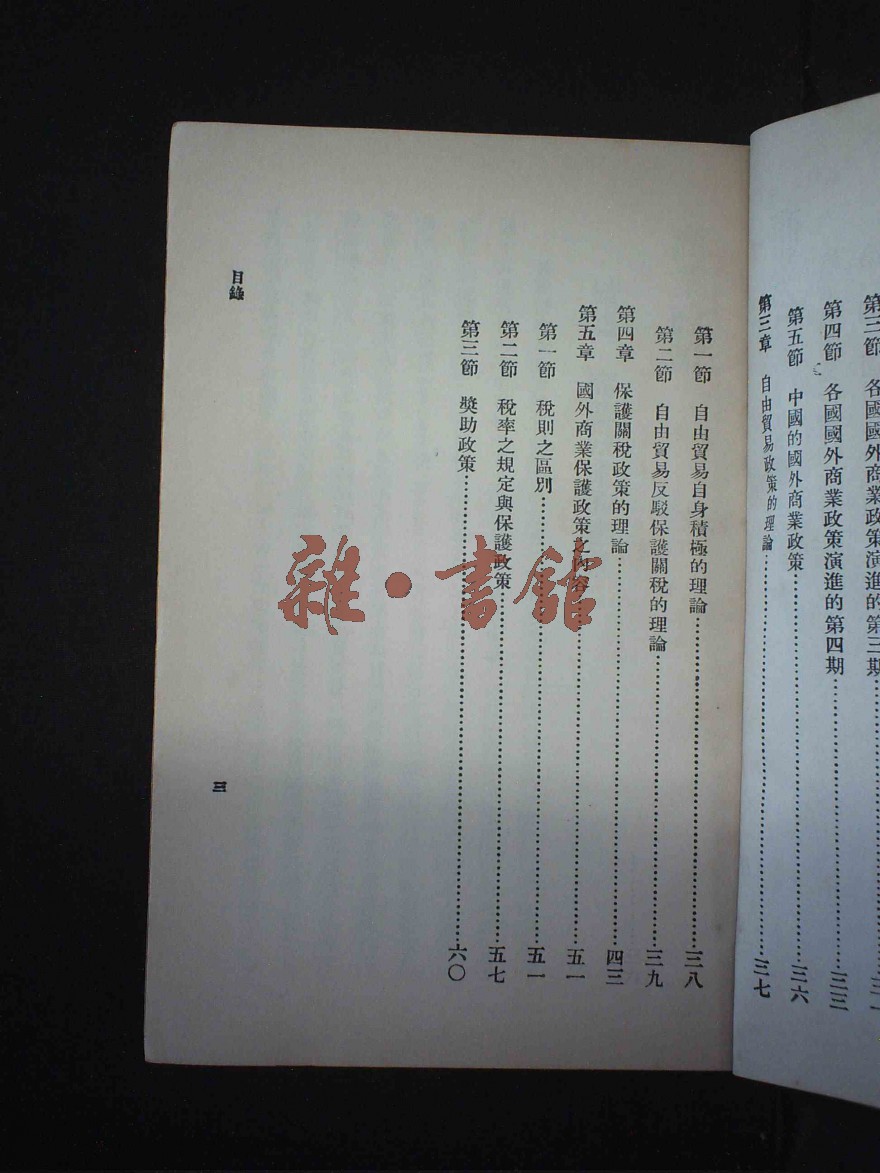 第三節　各國國外商業政策演進的第三期
第四節　各國國外商業政策演進的第四期……三三
第五節　中國的國外商業政策……三六
第三章　自由貿易政策的理論……三七
第一節　自由貿易自身積極的理論……三八
第二節　自由貿易反駁保護關稅的理論……三九
第四章　保護關稅政策的理論……四三
第五章　國外商業保護政策之內容……五一
第一節　稅則之區別……五一
第二節　稅率之規定與保護政策……五七
第三節　獎助政策……六〇
目錄
三
雜·書館